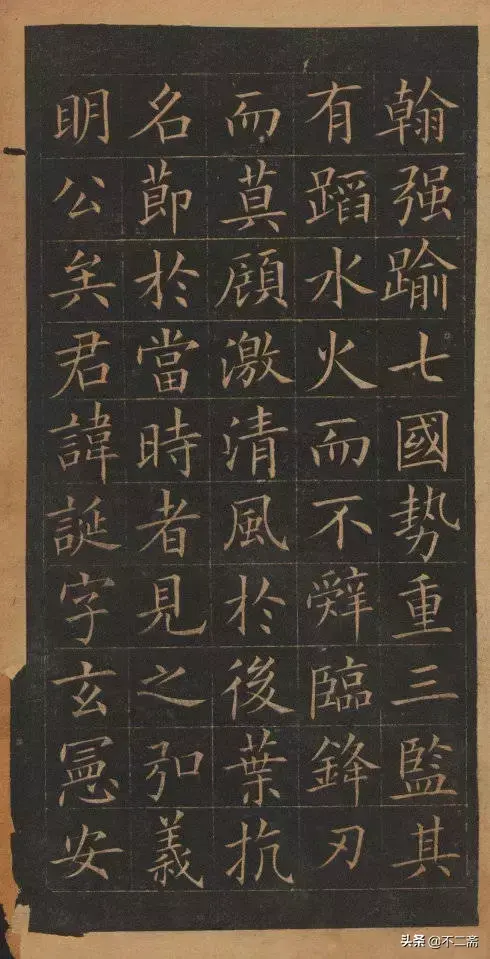 翰强踰七國勢重三監其
有蹈水火而不辤臨鋒刃
而莫顧激清風於後葉抗
名節於當時者見之弘義
明公矣君諱誕字玄憲安
头条@不二斋